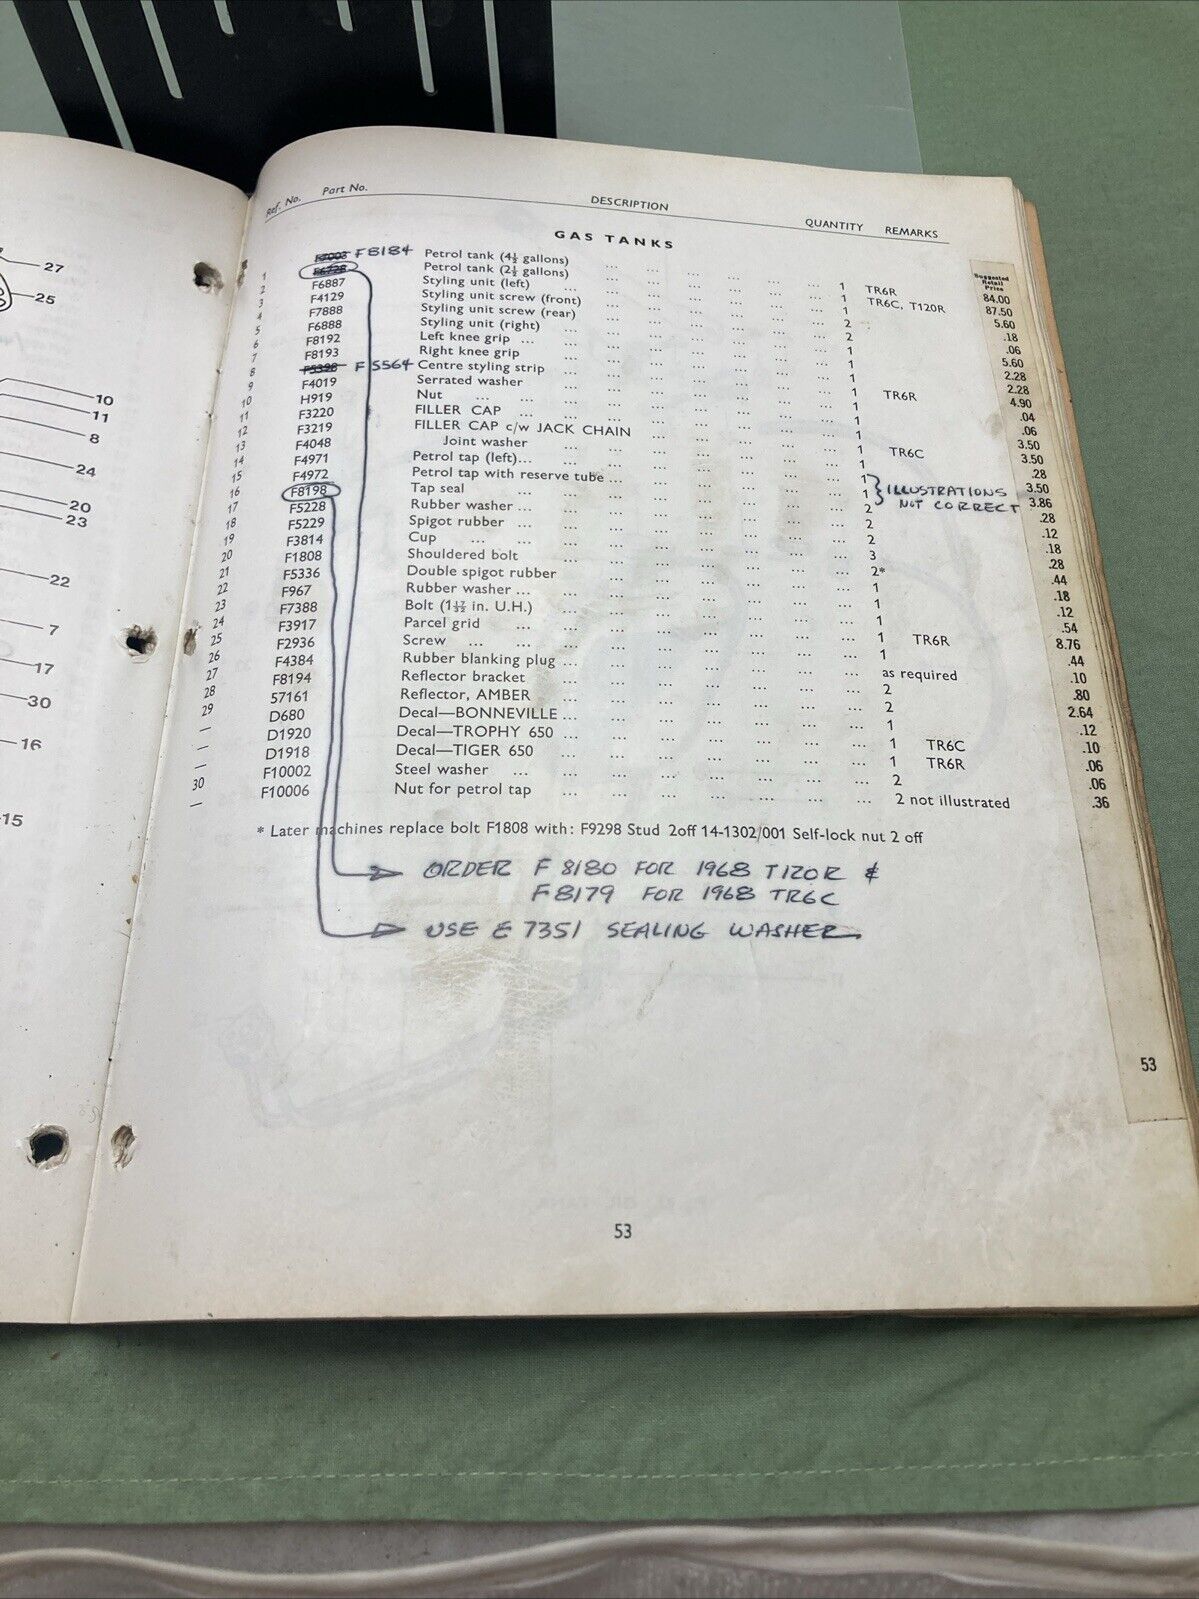 27
25
10
11
8
24
20
23
22
7
17
30
16
15
Ref. No. Part No. DESCRIPTION QUANTITY REMARKS
GAS TANKS
Suggested Retail Price
1 F7003 F8184 Petrol tank (4½ gallons) ... ... ... ... ... ... 1 TR6R 84.00
2 F6728 Petrol tank (2½ gallons) ... ... ... ... ... ... 1 TR6C, T120R 87.50
3 F6887 Styling unit (left) ... ... ... ... ... ... 1 5.60
4 F4129 Styling unit screw (front) ... ... ... ... ... 2 .18
5 F7888 Styling unit screw (rear) ... ... ... ... ... 2 .06
6 F6888 Styling unit (right) ... ... ... ... ... ... 1 5.60
7 F8192 Left knee grip ... ... ... ... ... ... ... 1 2.28
8 F8193 Right knee grip ... ... ... ... ... ... 1 2.28
9 F5398 F5564 Centre styling strip ... ... ... ... ... ... 1 TR6R 4.90
10 F4019 Serrated washer ... ... ... ... ... ... 1 .04
11 H919 Nut ... ... ... ... ... ... ... ... 1 .06
12 F3220 FILLER CAP ... ... ... ... ... ... ... 1 3.50
13 F3219 FILLER CAP c/w JACK CHAIN ... ... ... ... ... 1 TR6C 3.50
14 F4048 Joint washer ... ... ... ... ... ... 1 .28
15 F4971 Petrol tap (left)... ... ... ... ... ... ... 1 ILLUSTRATIONS 3.50
16 F4972 Petrol tap with reserve tube ... ... ... ... ... 1 NOT CORRECT 3.86
17 F8198 Tap seal ... ... ... ... ... ... ... 2 .28
18 F5228 Rubber washer ... ... ... ... ... ... ... 2 .12
19 F5229 Spigot rubber ... ... ... ... ... ... ... 2 .18
20 F3814 Cup ... ... ... ... ... ... ... ... 3 .28
21 F1808 Shouldered bolt ... ... ... ... ... ... 2* .44
22 F5336 Double spigot rubber ... ... ... ... ... 1 .18
23 F967 Rubber washer ... ... ... ... ... ... ... 1 .12
24 F7388 Bolt (1 17/32 in. U.H.) ... ... ... ... ... ... 1 .54
25 F3917 Parcel grid ... ... ... ... ... ... ... 1 TR6R 8.76
26 F2936 Screw ... ... ... ... ... ... ... ... 1 .44
27 F4384 Rubber blanking plug ... ... ... ... ... ... as required .10
28 F8194 Reflector bracket ... ... ... ... ... ... 2 .80
29 57161 Reflector, AMBER ... ... ... ... ... ... 2 2.64
— D680 Decal—BONNEVILLE ... ... ... ... ... ... 1 .12
— D1920 Decal—TROPHY 650 ... ... ... ... ... ... 1 TR6C .10
— D1918 Decal—TIGER 650 ... ... ... ... ... ... 1 TR6R .06
30 F10002 Steel washer ... ... ... ... ... ... ... 2 .06
— F10006 Nut for petrol tap ... ... ... ... ... ... 2 not illustrated .36
* Later machines replace bolt F1808 with: F9298 Stud 2off 14-1302/001 Self-lock nut 2 off
ORDER F 8180 FOR 1968 T120R &
F8179 FOR 1968 TR6C
USE E 7351 SEALING WASHER
53
53